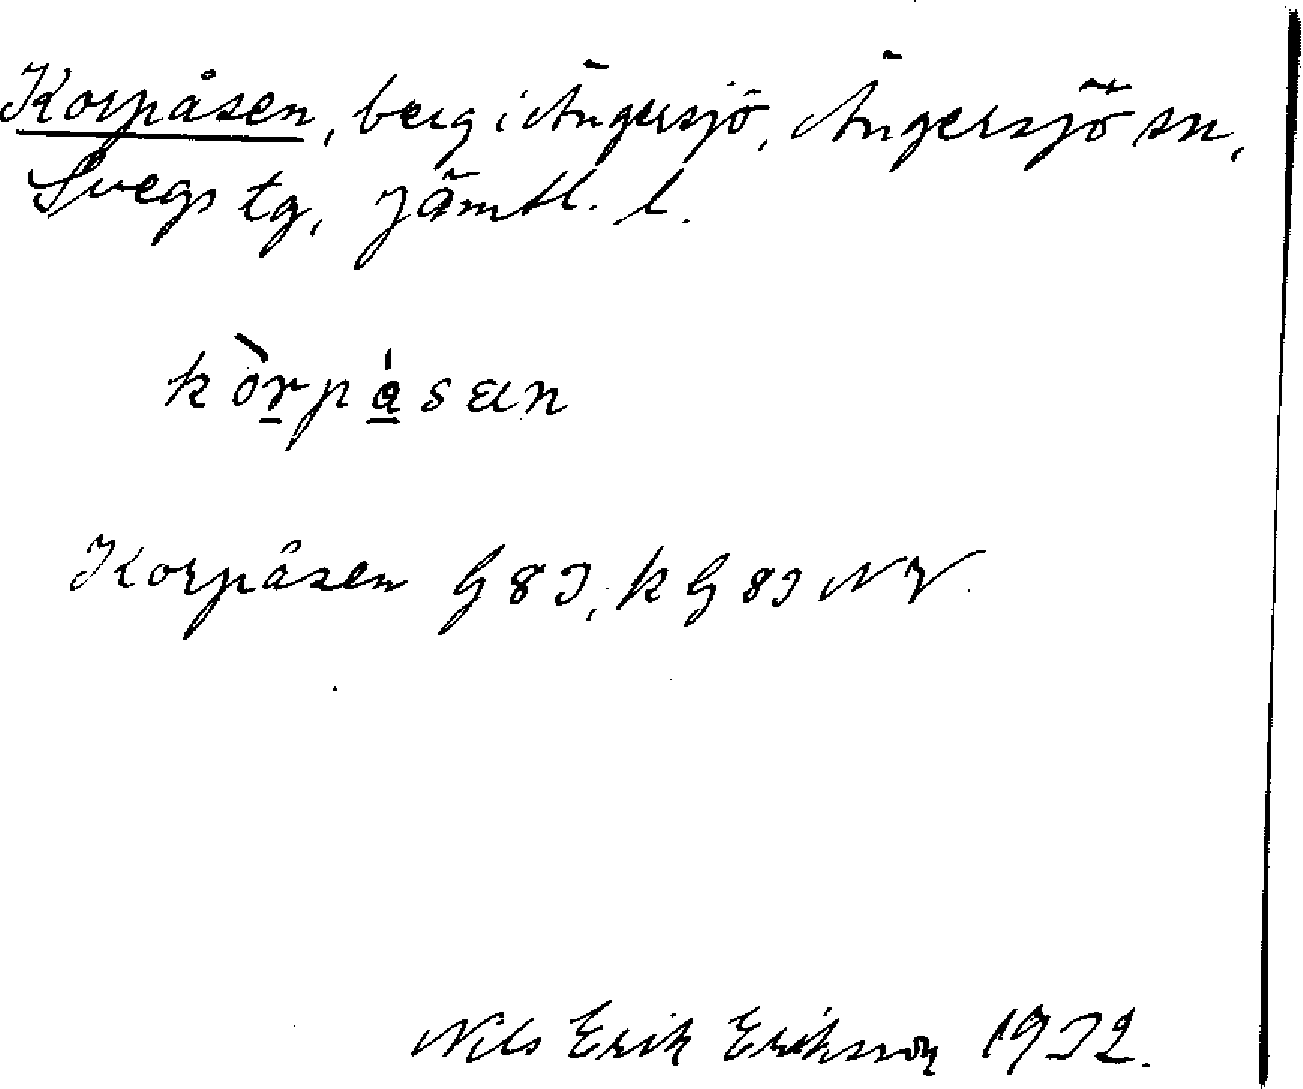 Korpåsen, berg i Ängersjö, Ängersjö sn,
Svegs tg, Jämtl. l.
kòrpåsen
Korpåsen G 83, k G 83 NV.
Nils Erik Eriksson 1932.